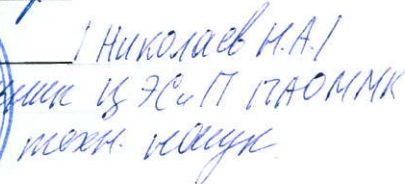 / Николаев Н.А. /
ЦЭСиП ПАО ММК
техн. наук